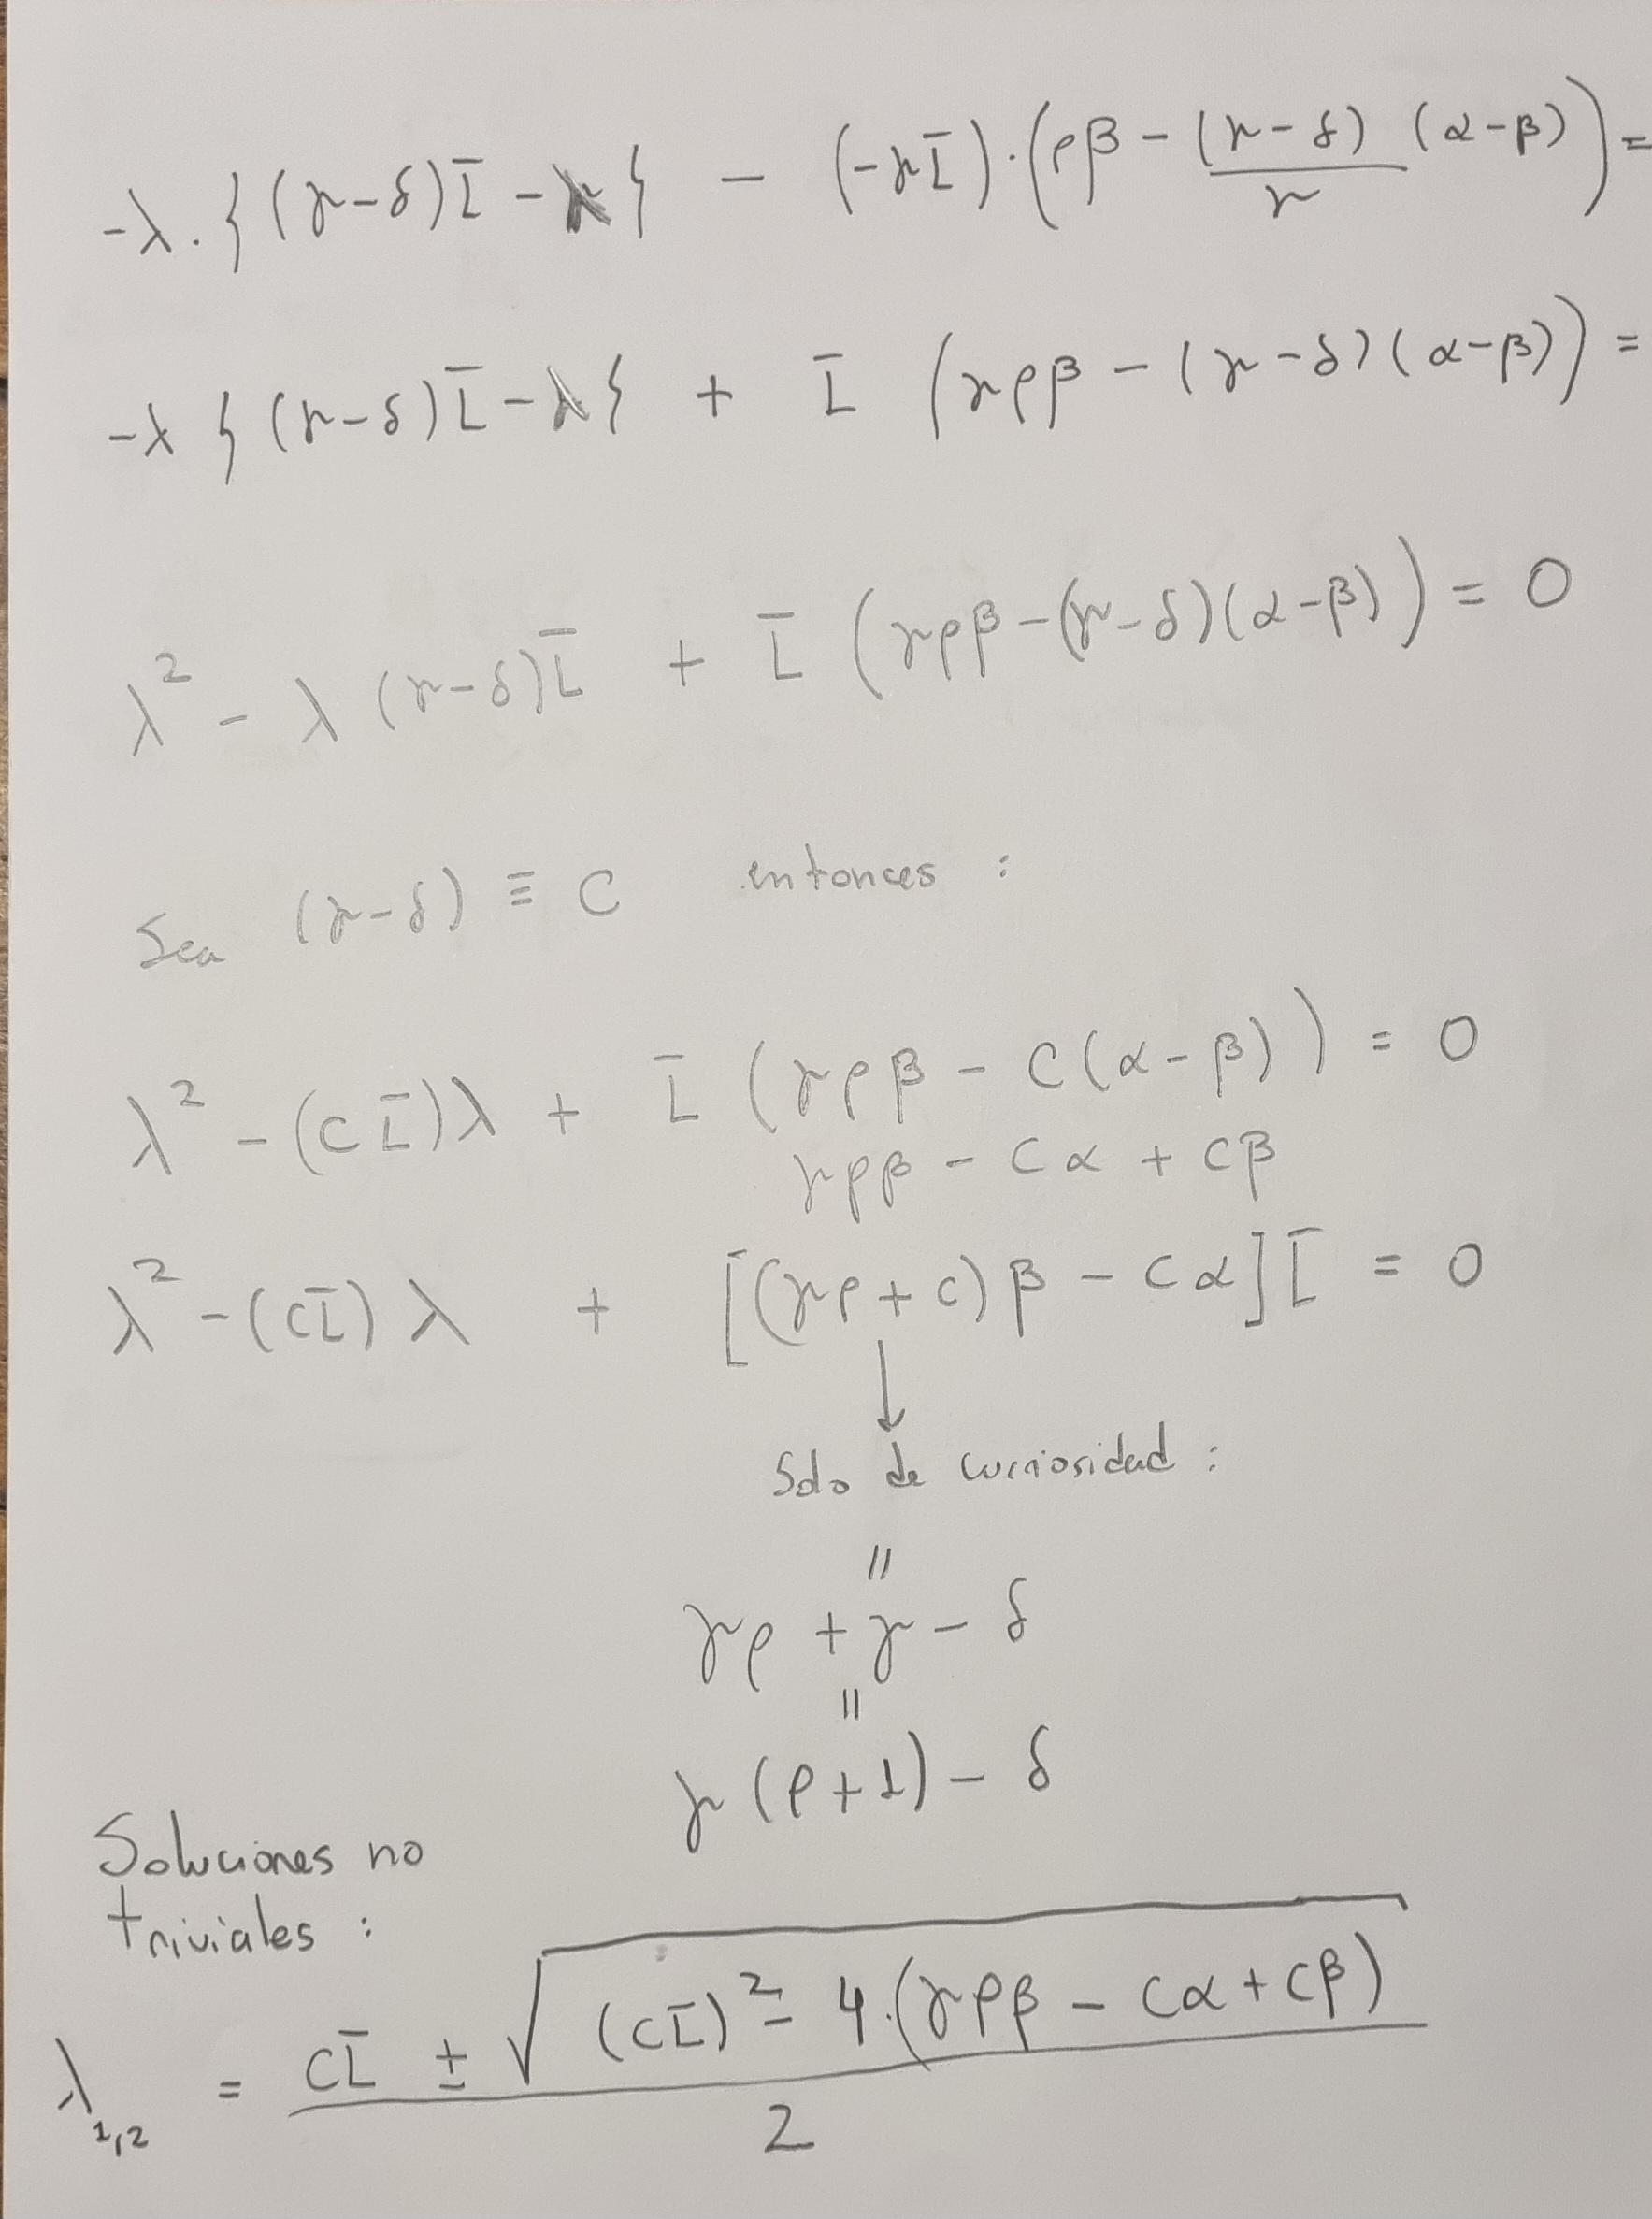 -λ·{(γ-δ)L̄ -λ} - (-γL̄)·(ρβ - (γ-δ)/γ (α-β)) =
-λ{(γ-δ)L̄ -λ} + L̄ (γρβ - (γ-δ)(α-β)) =
λ² - λ(γ-δ)L̄ + L̄ (γρβ -(γ-δ)(α-β)) = 0
Sea (γ-δ) ≡ C entonces :
λ² -(CL̄)λ + L̄ (γρβ - C(α-β)) = 0
γρβ - Cα + Cβ
λ² -(CL̄)λ + [(γρ+C)β - Cα]L̄ = 0
↓
Solo de curiosidad :
=
γρ + γ - δ
=
γ(ρ+1) - δ
Soluciones no
triviales :
λ₁,₂ = (CL̄ ± √((CL̄)² - 4·(γρβ - Cα + Cβ)))/2